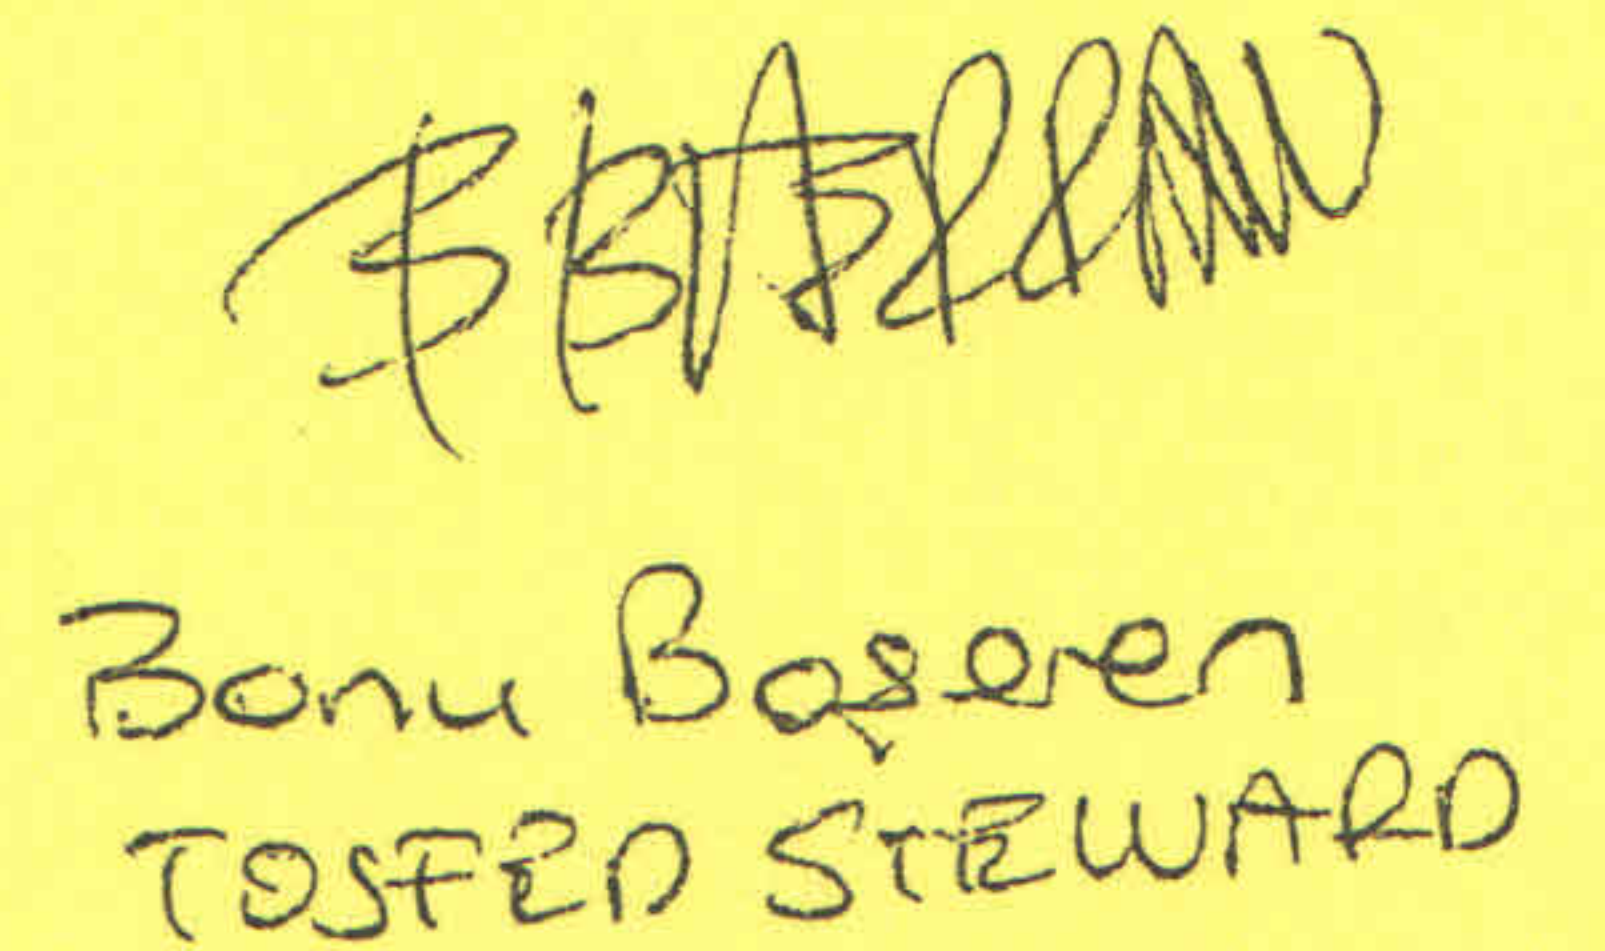 Banu Başeren
TOSFED STEWARD